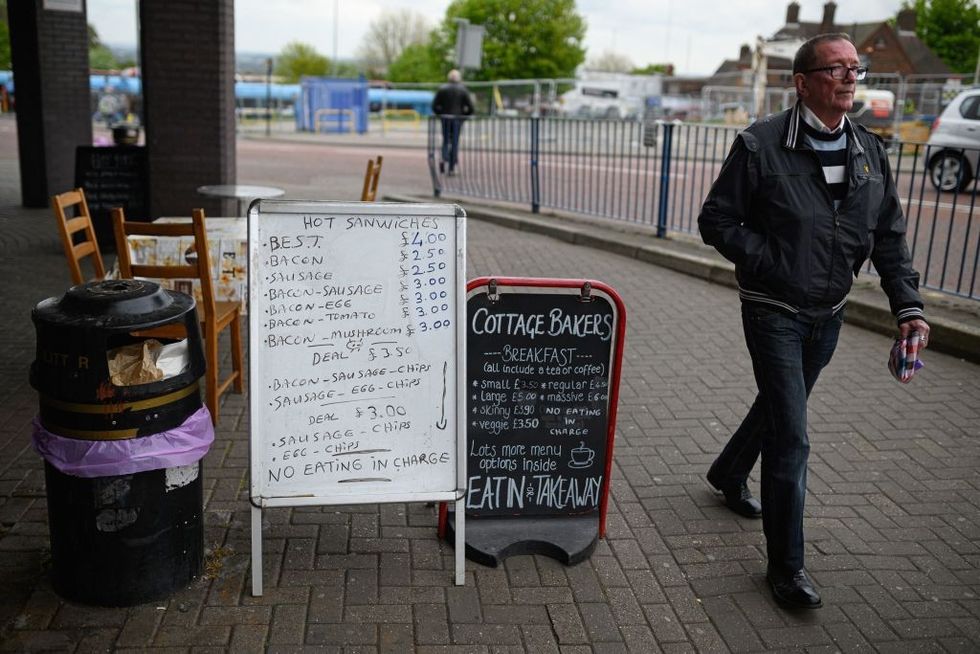 HOT SANWICHES
• B.E.S.T. £4.00
• BACON £2.50
• SAUSAGE £2.50
• BACON-SAUSAGE £3.00
• BACON-EGG £3.00
• BACON-TOMATO £3.00
• BACON-MUSHROOM £3.00
DEAL £3.50
• BACON-SAUSAGE-CHIPS
• SAUSAGE-EGG-CHIPS
DEAL £3.00
• SAUSAGE-CHIPS
• EGG-CHIPS
NO EATING IN CHARGE
COTTAGE BAKERS
BREAKFAST
(all include a tea or coffee)
* small £3.50 * regular
* large £5.00 * massive
* skinny £3.90 NO EATING
* veggie £3.50 IN CHARGE
Lots more menu
options inside
EAT IN -OR- TAKEAWAY